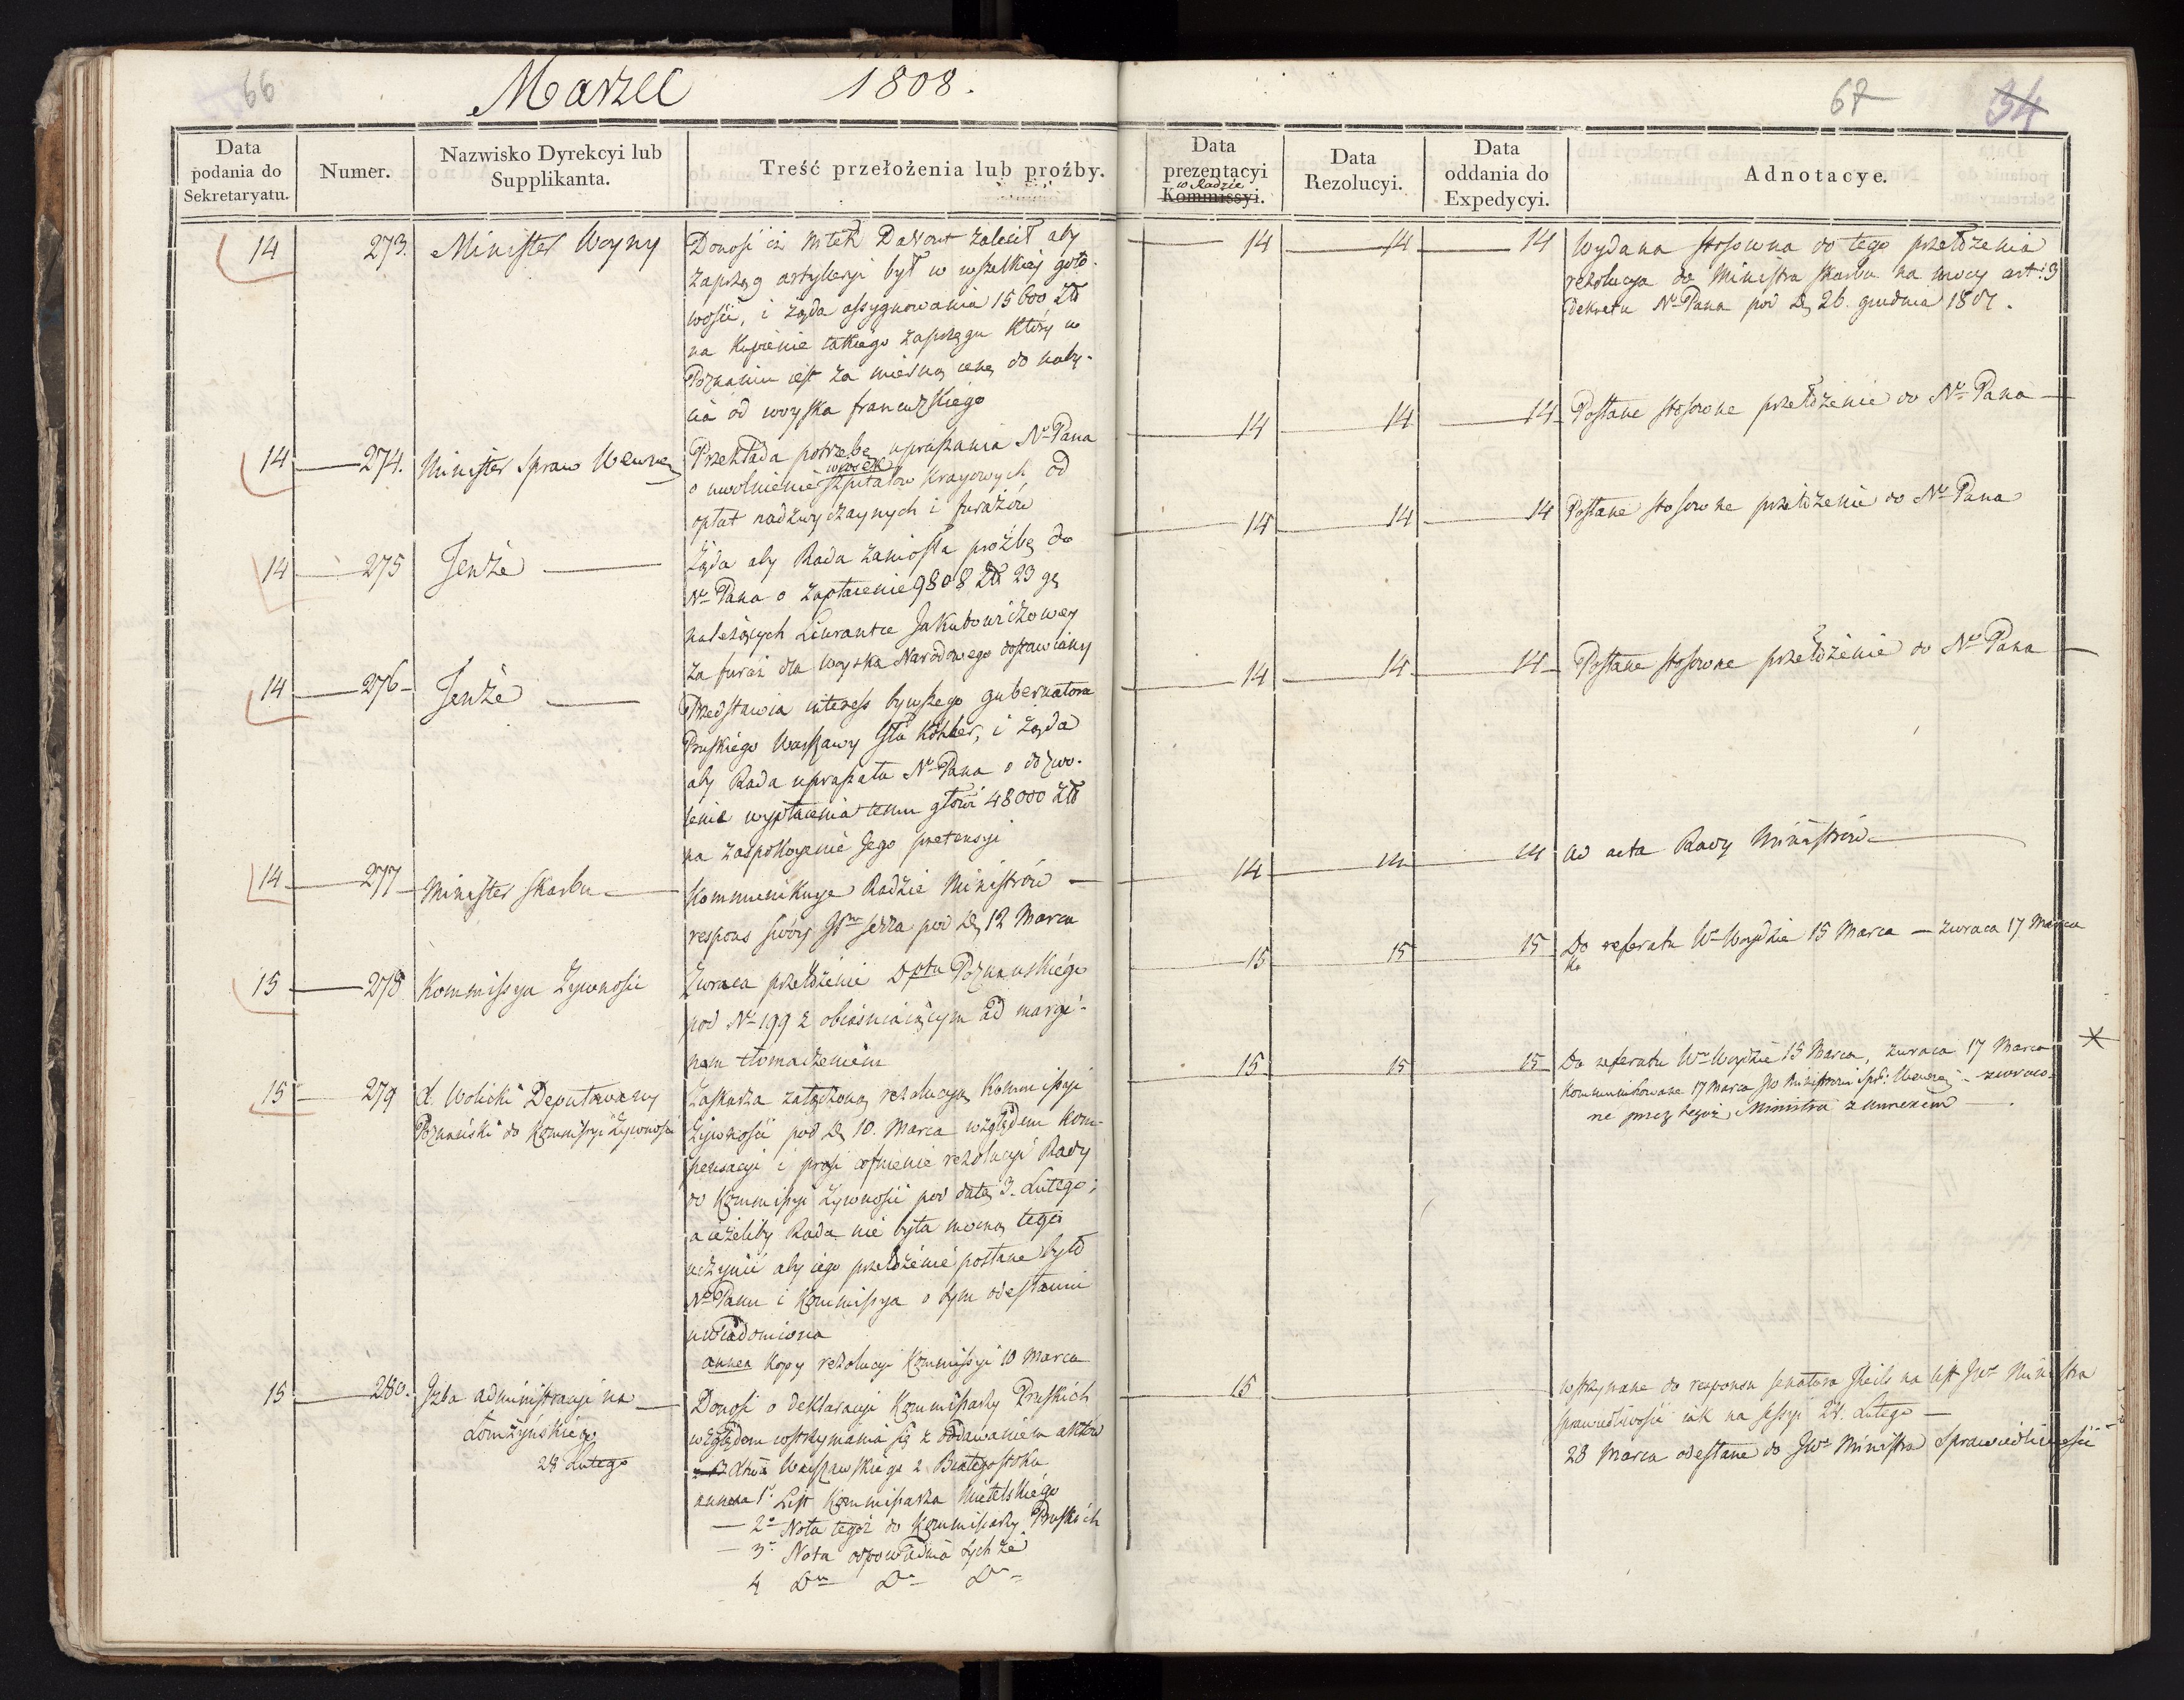 66
Marzec 1808.
67 34
Data podania do Sekretaryatu.
Numer.
Nazwisko Dyrekcyi lub Supplikanta.
Treść przełożenia lub proźby.
Data prezentacyi w Radzie Kommissyi.
Data Rezolucyi.
Data oddania do Expedycyi.
Adnotacye.
14 273. Minister Woyny
Donosi iż Młek Davout zalecił aby
zaprzęg artylleryi był w wszelkiey goto-
wości, i żąda assygnowania 15600 Zł
na kupienie takiego zaprzęgu który w
Poznaniu iest za mierną cenę do naby-
cia od woyska francuzkiego
14 14 14 Wydana stosowna do tego przełożenia
rezolucya do Ministra Skarbu na mocy art: 3
Dekretu N. Pana pod d. 26. grudnia 1807.
14 274. Minister Spraw Wewnę
Przekłada potrzebę upraszania N. Pana
o uwolnienie wiosek szpitalów kraiowych od
opłat nadzwyczaynych i furażów
14 14 14 Posłane stosowne przełożenie do N. Pana
14 275 Tenże
Żąda aby Rada zaniosła proźbę do
N. Pana o zapłacenie 9808 Zł 23 gr
należących Liwrantce Jakubowiczowey
za furaż dla woyska Narodowego dostawiany
14 14 14 Posłane stosowne przełożenie do N. Pana
14 276 Tenże
Przedstawia interess bywszego gubernatora
Pruskiego Warszawy Gła Köhler, i żąda
aby Rada upraszała N. Pana o dozwo-
lenie wypłacenia temu głowi 48000 Zł
na zaspokoienie Jego pretensyi
14 14 14 Posłane stosowne przełożenie do N. Pana
14 277 Minister Skarbu
Kommunikuye Radzie Ministrów
respons swóy Pr Serra pod d. 12 Marca
14 14 14 Ad acta Rady Ministrów
15 278 Kommissya Żywności
Zwraca przełożenie Dptu Poznanskiego
pod N. 199 z obiaśniaiącym ad margi-
nem tłomaczeniem
15 15 15 Do referatu W. Woydzie 15 Marca — zwraca 17 Marca
15 279 d. Wolicki Deputowany
Poznański do Kommissyi Żywności
Zaskarża załączoną rezolucyą Kommissyi
Żywności pod d. 10. Marca względem kom-
pensacyi i prosi cofnienie rezolucyi Rady
do Kommissyi Żywności pod datą 3. Lutego;
a ieżeliby Rada nie była mocną tego
uczynić aby iego przełożenie posłane było
N. Panu i Kommissya o tym odesłaniu
uwiadomiona
annex kopy rezolucyi Kommissyi 10 Marca
15 15 15 Do referatu W. Woydzie 15 Marca, zwraca 17 Marca
Kommunikowane 17 Marca JW Ministrowi Spr: Wewnę - zwróco-
ne przez tegoż Ministra z annexem
15 280. Izba administracyina
Łomżyńskiego
28 Lutego
Donosi o deklaracyi Kommissarzy Pruskich
względem wstrzymania się z oddawaniem aktów
Dttwa Warszawskiego z Białegostoku
annexa 1. List Kommissarza Mietelskiego
— 2. Nota tegoż do Kommissarzy Pruskich
— 3. Nota odpowiednia tychże
4 Do Do Do
15 wstrzymane do responsu Senatora na list JW. Ministra
Sprawiedliwości iak na sessyi 24. Lutego —
28 Marca odesłane do JW. Ministra Sprawiedliwości